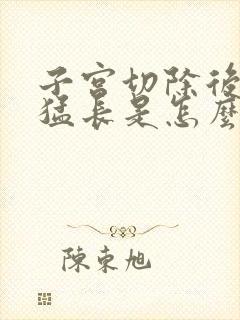 子宮切除後
猛長是怎麼
陳東旭